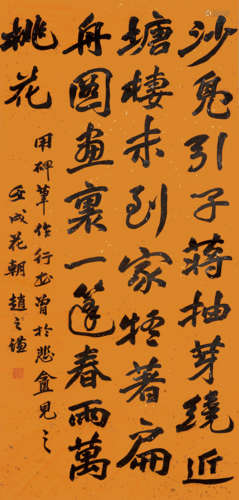 沙鳧引子蔣抽芽繞近
塘棲未到家怪著扁
舟圖畫裏一篷春雨萬
桃花
用碑草作行書曾於悲盦見之
壬戌花朝趙之謙